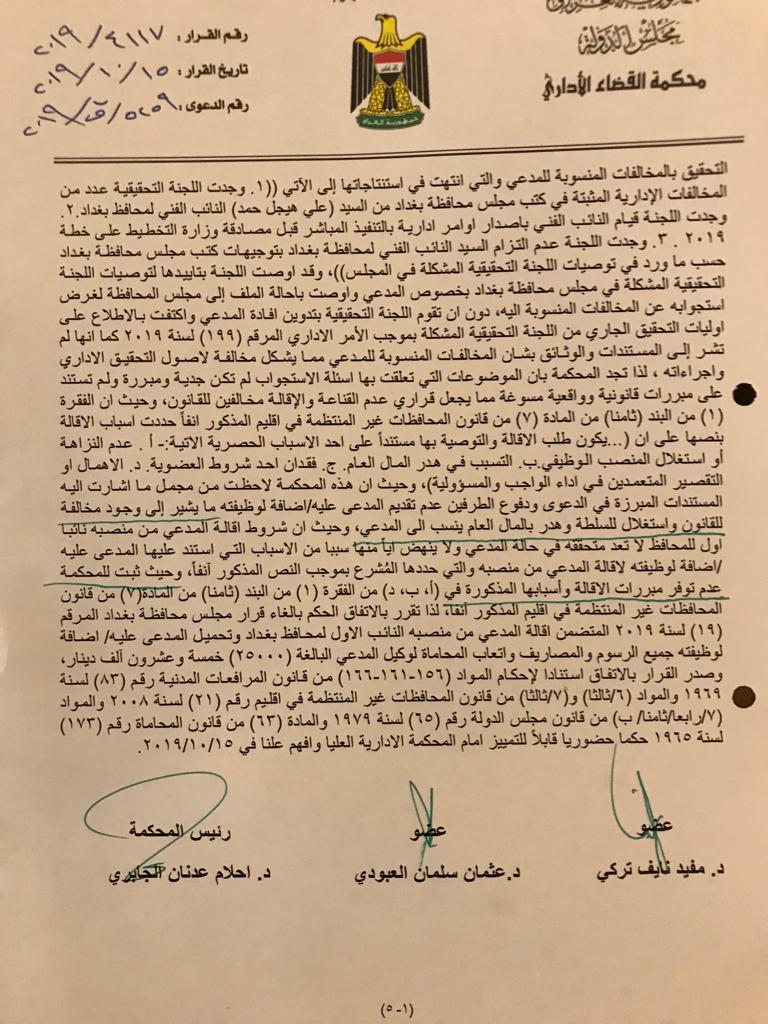 مجلس الدولة
محكمة القضاء الأداري
رقم القرار: ٢٠١٩/٤١١٧
تاريخ القرار: ٢٠١٩/١٠/١٥
رقم الدعوى: ٥٢٥٩/ق/٢٠١٩
جمهورية العراق
التحقيق بالمخالفات المنسوبة للمدعي والتي انتهت في استنتاجاتها إلى الآتي ((١. وجدت اللجنة التحقيقية عدد من
المخالفات الإدارية المثبتة في كتب مجلس محافظة بغداد من السيد (علي هيجل حمد) النائب الفني لمحافظ بغداد.٢.
وجدت اللجنة قيام النائب الفني باصدار اوامر ادارية بالتنفيذ المباشر قبل مصادقة وزارة التخطيط على خطة
٢٠١٩ .٣. وجدت اللجنة عدم التزام السيد النائب الفني لمحافظة بغداد بتوجيهات كتب مجلس محافظة بغداد
حسب ما ورد في توصيات اللجنة التحقيقية المشكلة في المجلس))، وقد اوصت اللجنة بتاييدها لتوصيات اللجنة
التحقيقية المشكلة في مجلس محافظة بغداد بخصوص المدعي واوصت باحالة الملف إلى مجلس المحافظة لغرض
استجوابه عن المخالفات المنسوبة اليه، دون ان تقوم اللجنة التحقيقية بتدوين افادة المدعي واكتفت بالاطلاع على
اوليات التحقيق الجاري من اللجنة التحقيقية المشكلة بموجب الأمر الاداري المرقم (١٩٩) لسنة ٢٠١٩ كما انها لم
تشر إلى المستندات والوثائق بشان المخالفات المنسوبة للمدعي مما يشكل مخالفة لاصول التحقيق الاداري
واجراءاته ، لذا تجد المحكمة بان الموضوعات التي تعلقت بها اسئلة الاستجواب لم تكن جدية ومبررة ولم تستند
على مبررات قانونية وواقعية مسوغة مما يجعل قراري عدم القناعة والإقالة مخالفين للقانون، وحيث ان الفقرة
(١) من البند (ثامنا) من المادة (٧) من قانون المحافظات غير المنتظمة في اقليم المذكور انفاً حددت اسباب الاقالة
بنصها على ان (...يكون طلب الاقالة والتوصية بها مستنداً على احد الاسباب الحصرية الاتية:- أ . عدم النزاهة
أو استغلال المنصب الوظيفي.ب. التسبب في هدر المال العام. ج. فقدان احد شروط العضوية. د. الاهمال او
التقصير المتعمدين في اداء الواجب والمسؤولية)، وحيث ان هذه المحكمة لاحظت من مجمل ما اشارت اليه
المستندات المبرزة في الدعوى ودفوع الطرفين عدم تقديم المدعى عليه/اضافة لوظيفته ما يشير إلى وجود مخالفة
للقانون واستغلال للسلطة وهدر بالمال العام ينسب الى المدعي، وحيث ان شروط اقالة المدعي من منصبه نائبا
اول للمحافظ لا تعد متحققه في حالة المدعي ولا ينهض أياً منها سببا من الاسباب التي استند عليها المدعى عليه
/اضافة لوظيفته لاقالة المدعي من منصبه والتي حددها المُشرع بموجب النص المذكور آنفاً، وحيث ثبت للمحكمة
عدم توفر مبررات الاقالة وأسبابها المذكورة في (أ، ب، د) من الفقرة (١) من البند (ثامنا) من المادة(٧) من قانون
المحافظات غير المنتظمة في اقليم المذكور آنفا، لذا تقرر بالاتفاق الحكم بالغاء قرار مجلس محافظة بغداد المرقم
(١٩) لسنة ٢٠١٩ المتضمن اقالة المدعي من منصبه النائب الاول لمحافظ بغداد وتحميل المدعى عليه/ اضافة
لوظيفته جميع الرسوم والمصاريف واتعاب المحاماة لوكيل المدعي البالغة (٢٥٠٠٠) خمسة وعشرون آلف دينار،
وصدر القرار بالاتفاق استنادا لإحكام المواد (١٥٦-١٦١-١٦٦) من قانون المرافعات المدنية رقم (٨٣) لسنة
١٩٦٩ والمواد (٦/ثالثا) و(٧/ثالثا) من قانون المحافظات غير المنتظمة في اقليم رقم (٢١) لسنة ٢٠٠٨ والمواد
(٧/رابعا/ثامنا/ ب) من قانون مجلس الدولة رقم (٦٥) لسنة ١٩٧٩ والمادة (٦٣) من قانون المحاماة رقم (١٧٣)
لسنة ١٩٦٥ حكما حضوريا قابلاً للتمييز امام المحكمة الادارية العليا وافهم علنا في ٢٠١٩/١٠/١٥.
عضو
د. مفيد نايف تركي
عضو
د.عثمان سلمان العبودي
رئيس المحكمة
د. احلام عدنان الجابري
(١-٥)